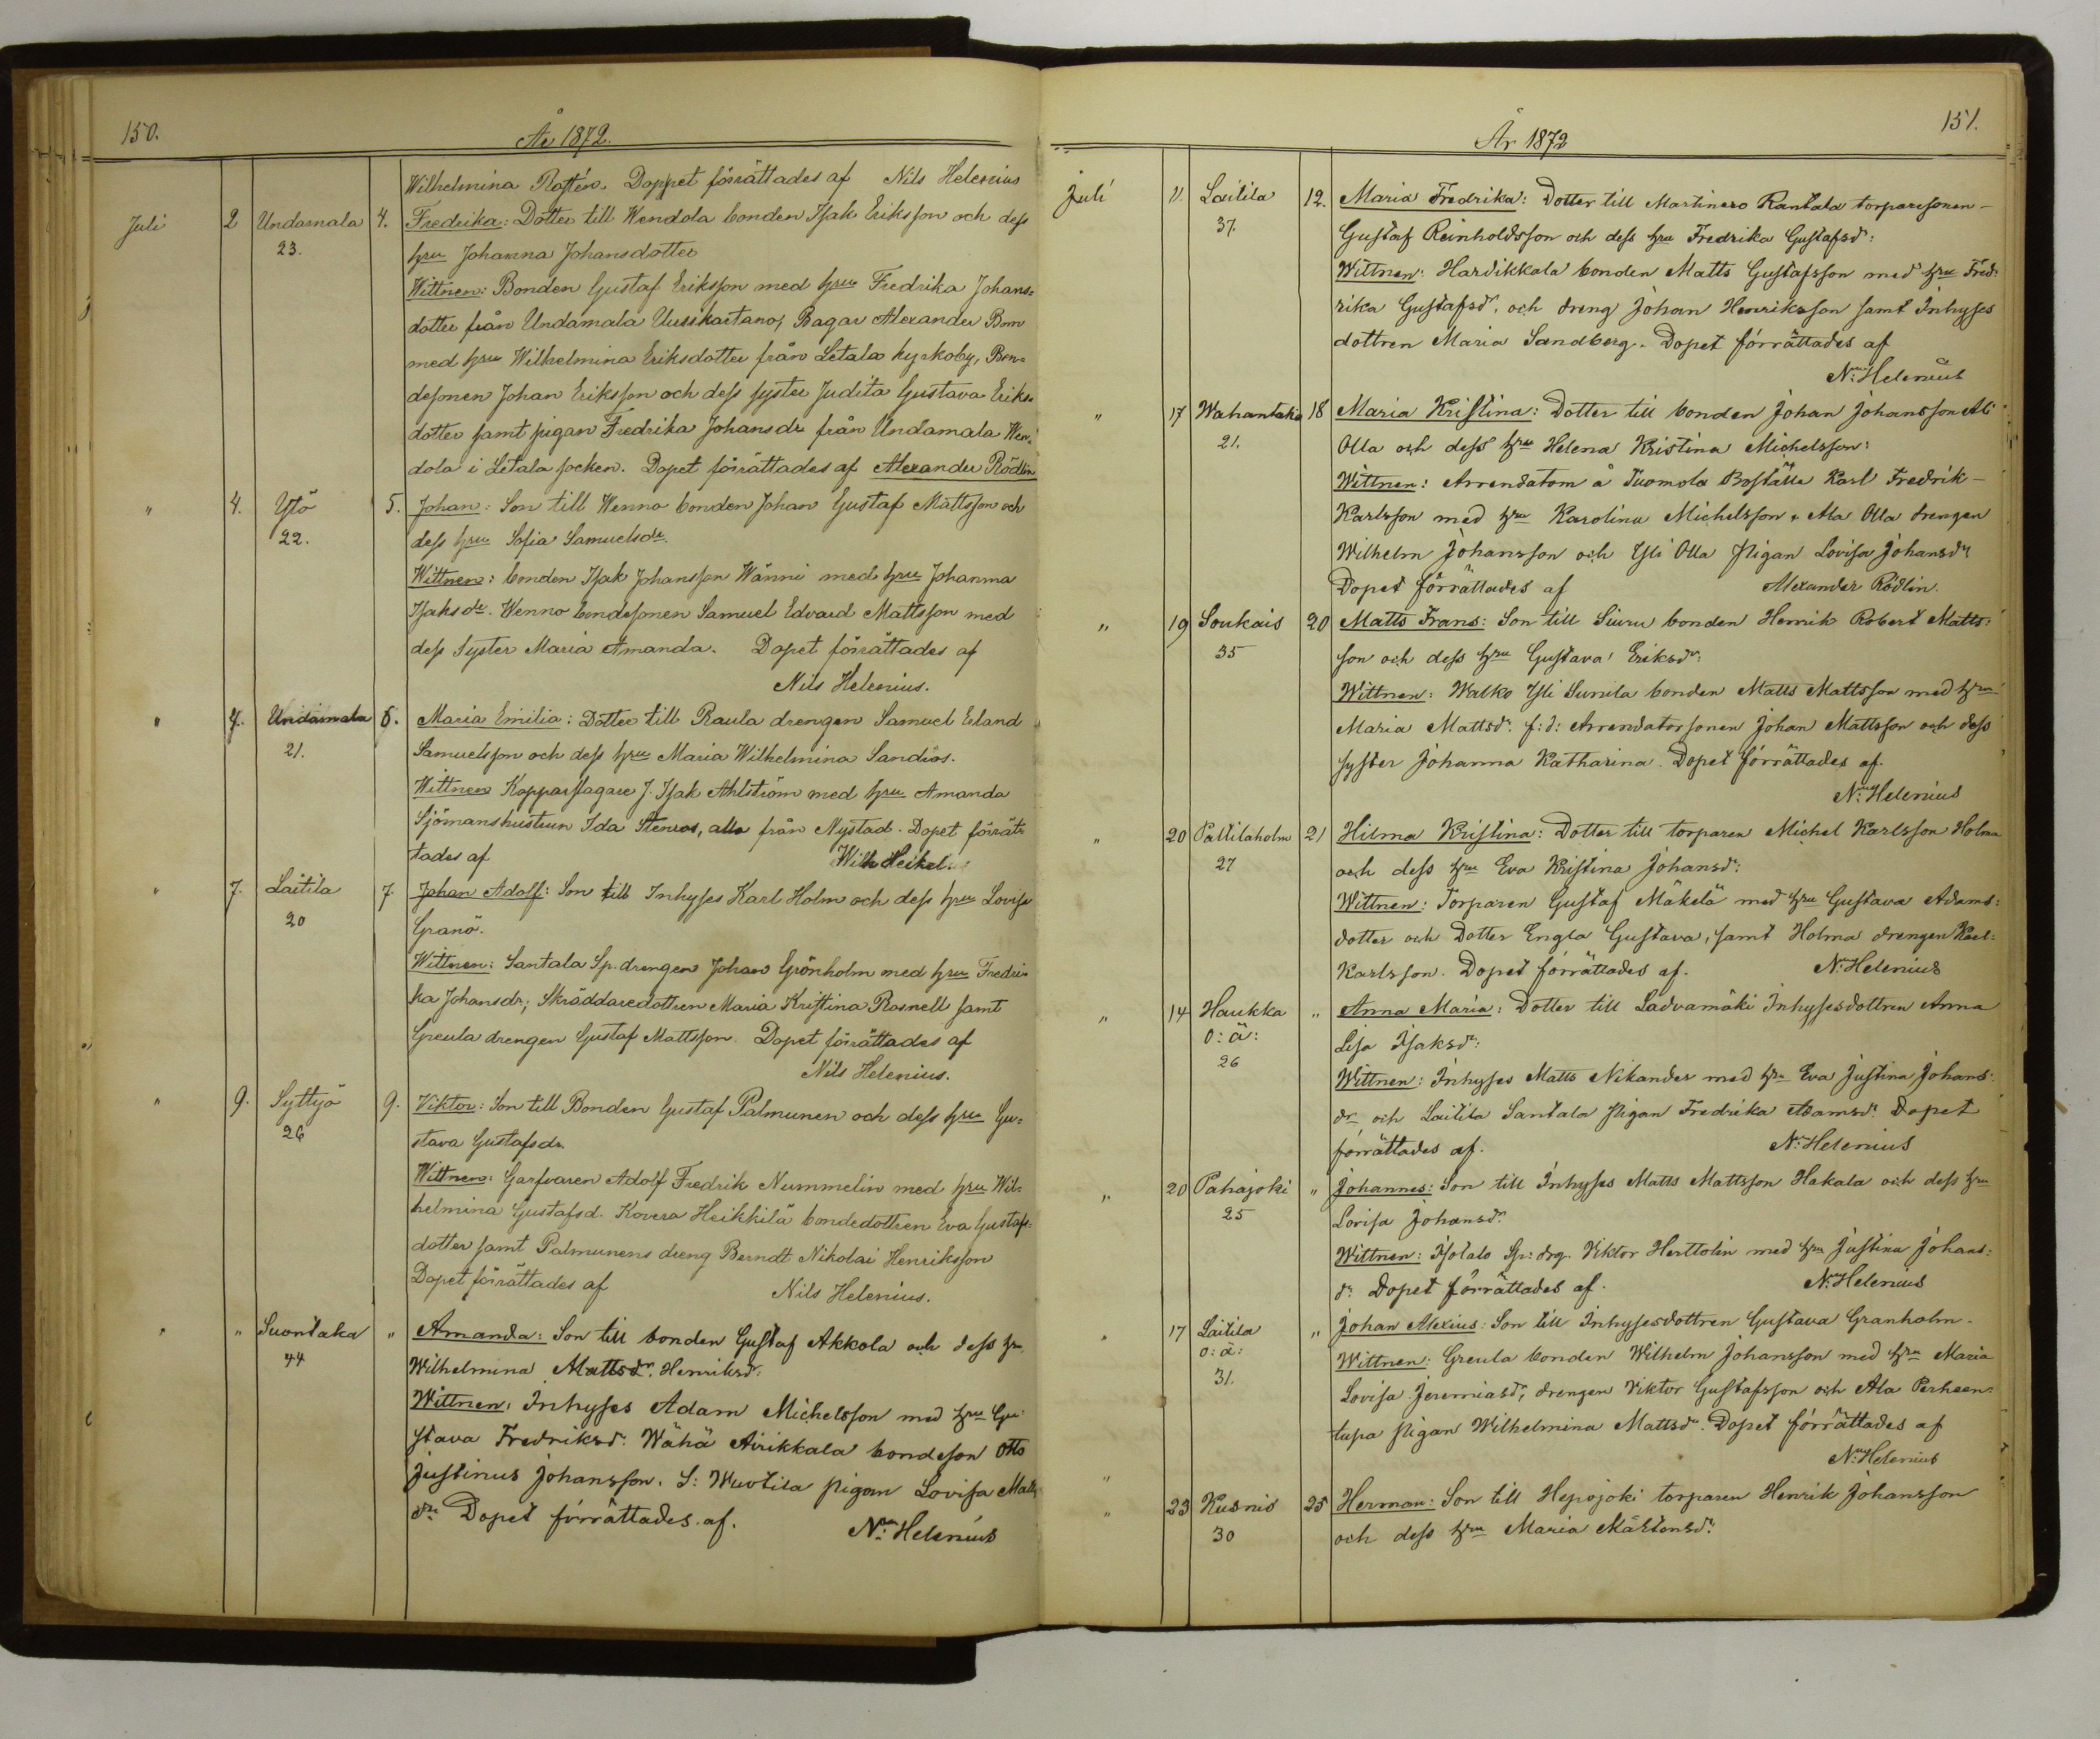 150.
År 1872.
Wilhelmina Doppet förrättades af Nils Helenius
Juli 2 Undamala 4. Fredrika: Dotter till Wendola bonden Isak Eriksson och dess
23. hru Johanna Johansdotter
Wittnen: Bonden Gustaf Eriksson med hru Fredrika Johans=
dotter från Undamala Uusikartano, Bagar Alexander Bom
med hru Wilhelmina Eriksdotter från Letala kyrkoby, Bon=
desonen Johan Eriksson och dess syster Judita Gustava Eriks=
dotter samt pigan Fredrika Johansdr från Undamala Wen=
dola i Letala socken. Dopet förrättades af Alexander Rödlin
" 4. Ytö 5. Johan: Son till Wenno bonden Johan Gustaf Mattsson och
22. dess hru Sofia Samuelsdr.
Wittnen: bonden Isak Johansson Wänni med hru Johanna
Isaksdr. Wenno bondesonen Samuel Edvard Mattsson med
dess Syster Maria Amanda. Dopet förrättades af
Nils Helenius.
" 4. Undamala 6. Maria Emilia: Dotter till Raula drengen Samuel Erland
21. Samuelsson och dess hru Maria Wilhelmina Sandros.
Wittnen Kopparslagare J. Isak Ahlström med hru Amanda
Sjömanshustrun Ida Stenros, alla från Nystad. Dopet förrät=
tades af Wilh Heikel.
" 7. Laitila 7. Johan Adolf: Son till Inhyses Karl Holm och dess hru Lovisa
20 Granö.
Wittnen: Santala Sp. drengen Johan Grönholm med hru Fredri=
ka Johansdr; Skräddaredottren Maria Kristina Rosnell samt
Greula drengen Gustaf Mattsson. Dopet förrättades af
Nils Helenius.
" 9. Syttyö 9. Viktor: Son till Bonden Gustaf Palmunen och dess hru Gu=
26 stava Gustafsdr.
Wittnen: Garfvaren Adolf Fredrik Nummelin med hru Wil=
helmina Gustafsd. Kovera Heikkilä bondedottren Eva Gustafs=
dotter samt Palmunens dreng Berndt Nikolai Henriksson
Dopet förrättades af Nils Helenius.
" " Suontaka " Amanda: Son till bonden Gustaf Akkola och dess hru
44 Wilhelmina Mattsdr. Henriksdr:
Wittnen: Inhyses Adam Michelsson med hru Gu=
stava Fredriksdr. Wähä Airikkala bondeson Otto
Justinus Johansson. S: Wuotila pigan Lovisa Matts
dr Dopet förrättades af. Ns Helenius
151.
År 1872
Juli 11. Laitila 12. Maria Fredrika: Dotter till Martinero Rantala torparesonen -
37. Gustaf Reinholdsson och dess hru Fredrika Gustafsdr:
Wittnen: Hardikkala bonden Matts Gustafsson med hru Fred=
rika Gustafsdr. och dreng Johan Henriksson samt Inhyses
dottren Maria Sandberg. Dopet förrättades af
Ns Helenius
" 17 Wahantaka 18 Maria Kristina: Dotter till bonden Johan Johansson Ali
21. Olla och dess hru Helena Kristina Michelsson:
Wittnen: Arrendatorn å Tuomola Boställe Karl Fredrik -
Karlsson med hru Karolina Michelsson. Ala Olla drengen
Wilhelm Johansson och Yli Olla Pigan Lovisa Johansdr
Dopet förrättades af Alexander Rödlin.
" 19 Soukais 20 Matts Frans: Son till Siuru bonden Henrik Robert Matts=
35 son och dess hru Gustava Eriksdr:
Wittnen: Walko Yli Sunila bonden Matts Mattsson med hru
Maria Mattsdr. f:d: Arrendatorssonen Johan Mattsson och dess
syster Johanna Katharina. Dopet förrättades af.
Ns Helenius
" 20 Pattilaholm 21 Hilma Kristina: Dotter till torparen Michel Karlsson Holma
27 och dess hru Eva Kristina Johansdr:
Wittnen: Torparen Gustaf Mäkelä med hru Gustava Adams=
dotter och Dotter Engla Gustava, samt Holma drengen Karl=
Karlsson. Dopet förrättades af. Ns Helenius
" 14 Haukka " Anna Maria: Dotter till Ladvamäki Inhysesdottren Anna
o: ä: Lisa Isaksdr:
26 Wittnen: Inhyses Matts Nikander med hru Eva Justina Johans=
dr och Laitila Santala Pigan Fredrika Adamsdr. Dopet
förrättades af. Ns Helenius
" 20 Pahajoki " Johannes: Son till Inhyses Matts Mattsson Hakala och dess hru
25 Lovisa Johansdr.
Wittnen: Isotalo Sp: drg. Viktor Herttolin med hru Justina Johans=
dr Dopet förrättades af. Ns Helenius
" 17 Laitila " Johan Alexius: Son till Inhysesdottren Gustava Granholm.
o: ä: Wittnen: Greula bonden Wilhelm Johansson med hru Maria
31. Lovisa Jeremiasdr, drengen Viktor Gustafsson och Ala Perheen=
tupa Pigan Wilhelmina Mattsdr. Dopet förrättades af
" Ns Helenius
" 23 Kusnis 25 Herman: Son till Hepojoki torparen Henrik Johansson
30 och dess hru Maria Mårtensdr.